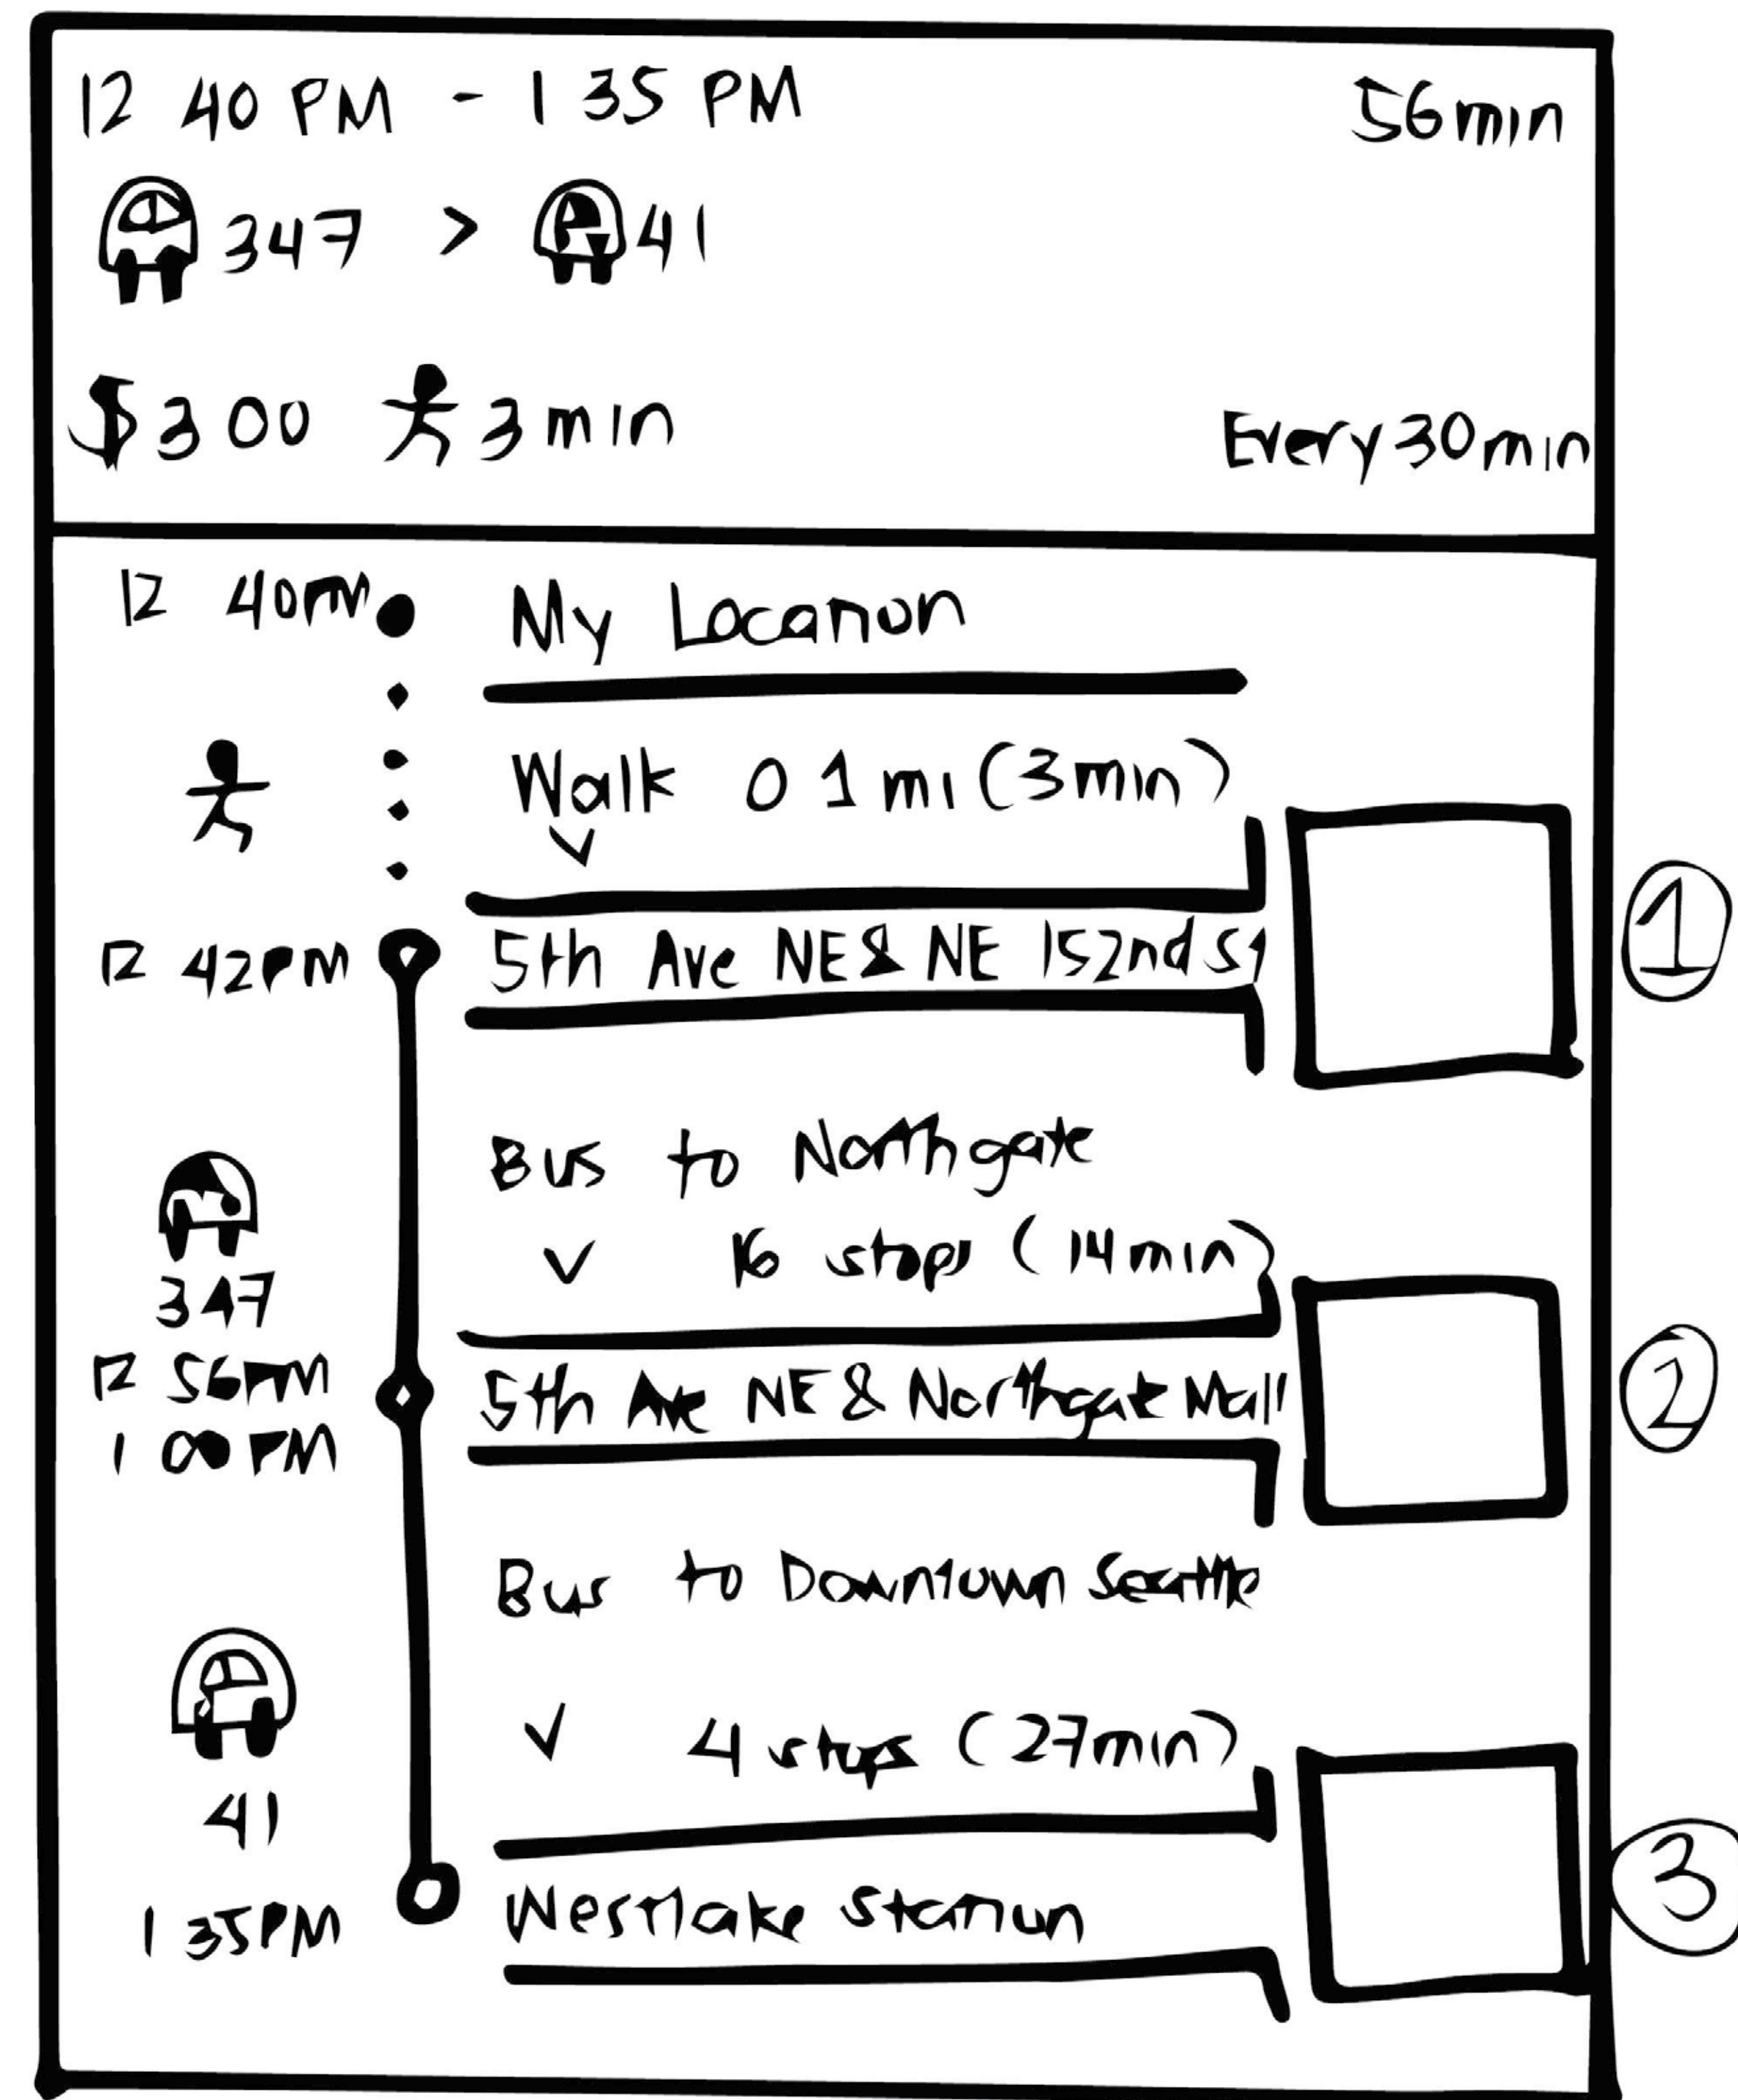 12 40 PM - 1 35 PM 56min
347 > 41
$3 00 3min Every 30min
12 40PM My Location
Walk 0 1 mi (3min)
12 42PM 5th Ave NE & NE 152nd St 1
Bus to Northgate
16 stops (14min)
347
12 56PM 5th Ave NE & Northgate Mall 2
1 00 PM
Bus to Downtown Seattle
4 stops (27min)
41
1 35PM Westlake Station 3